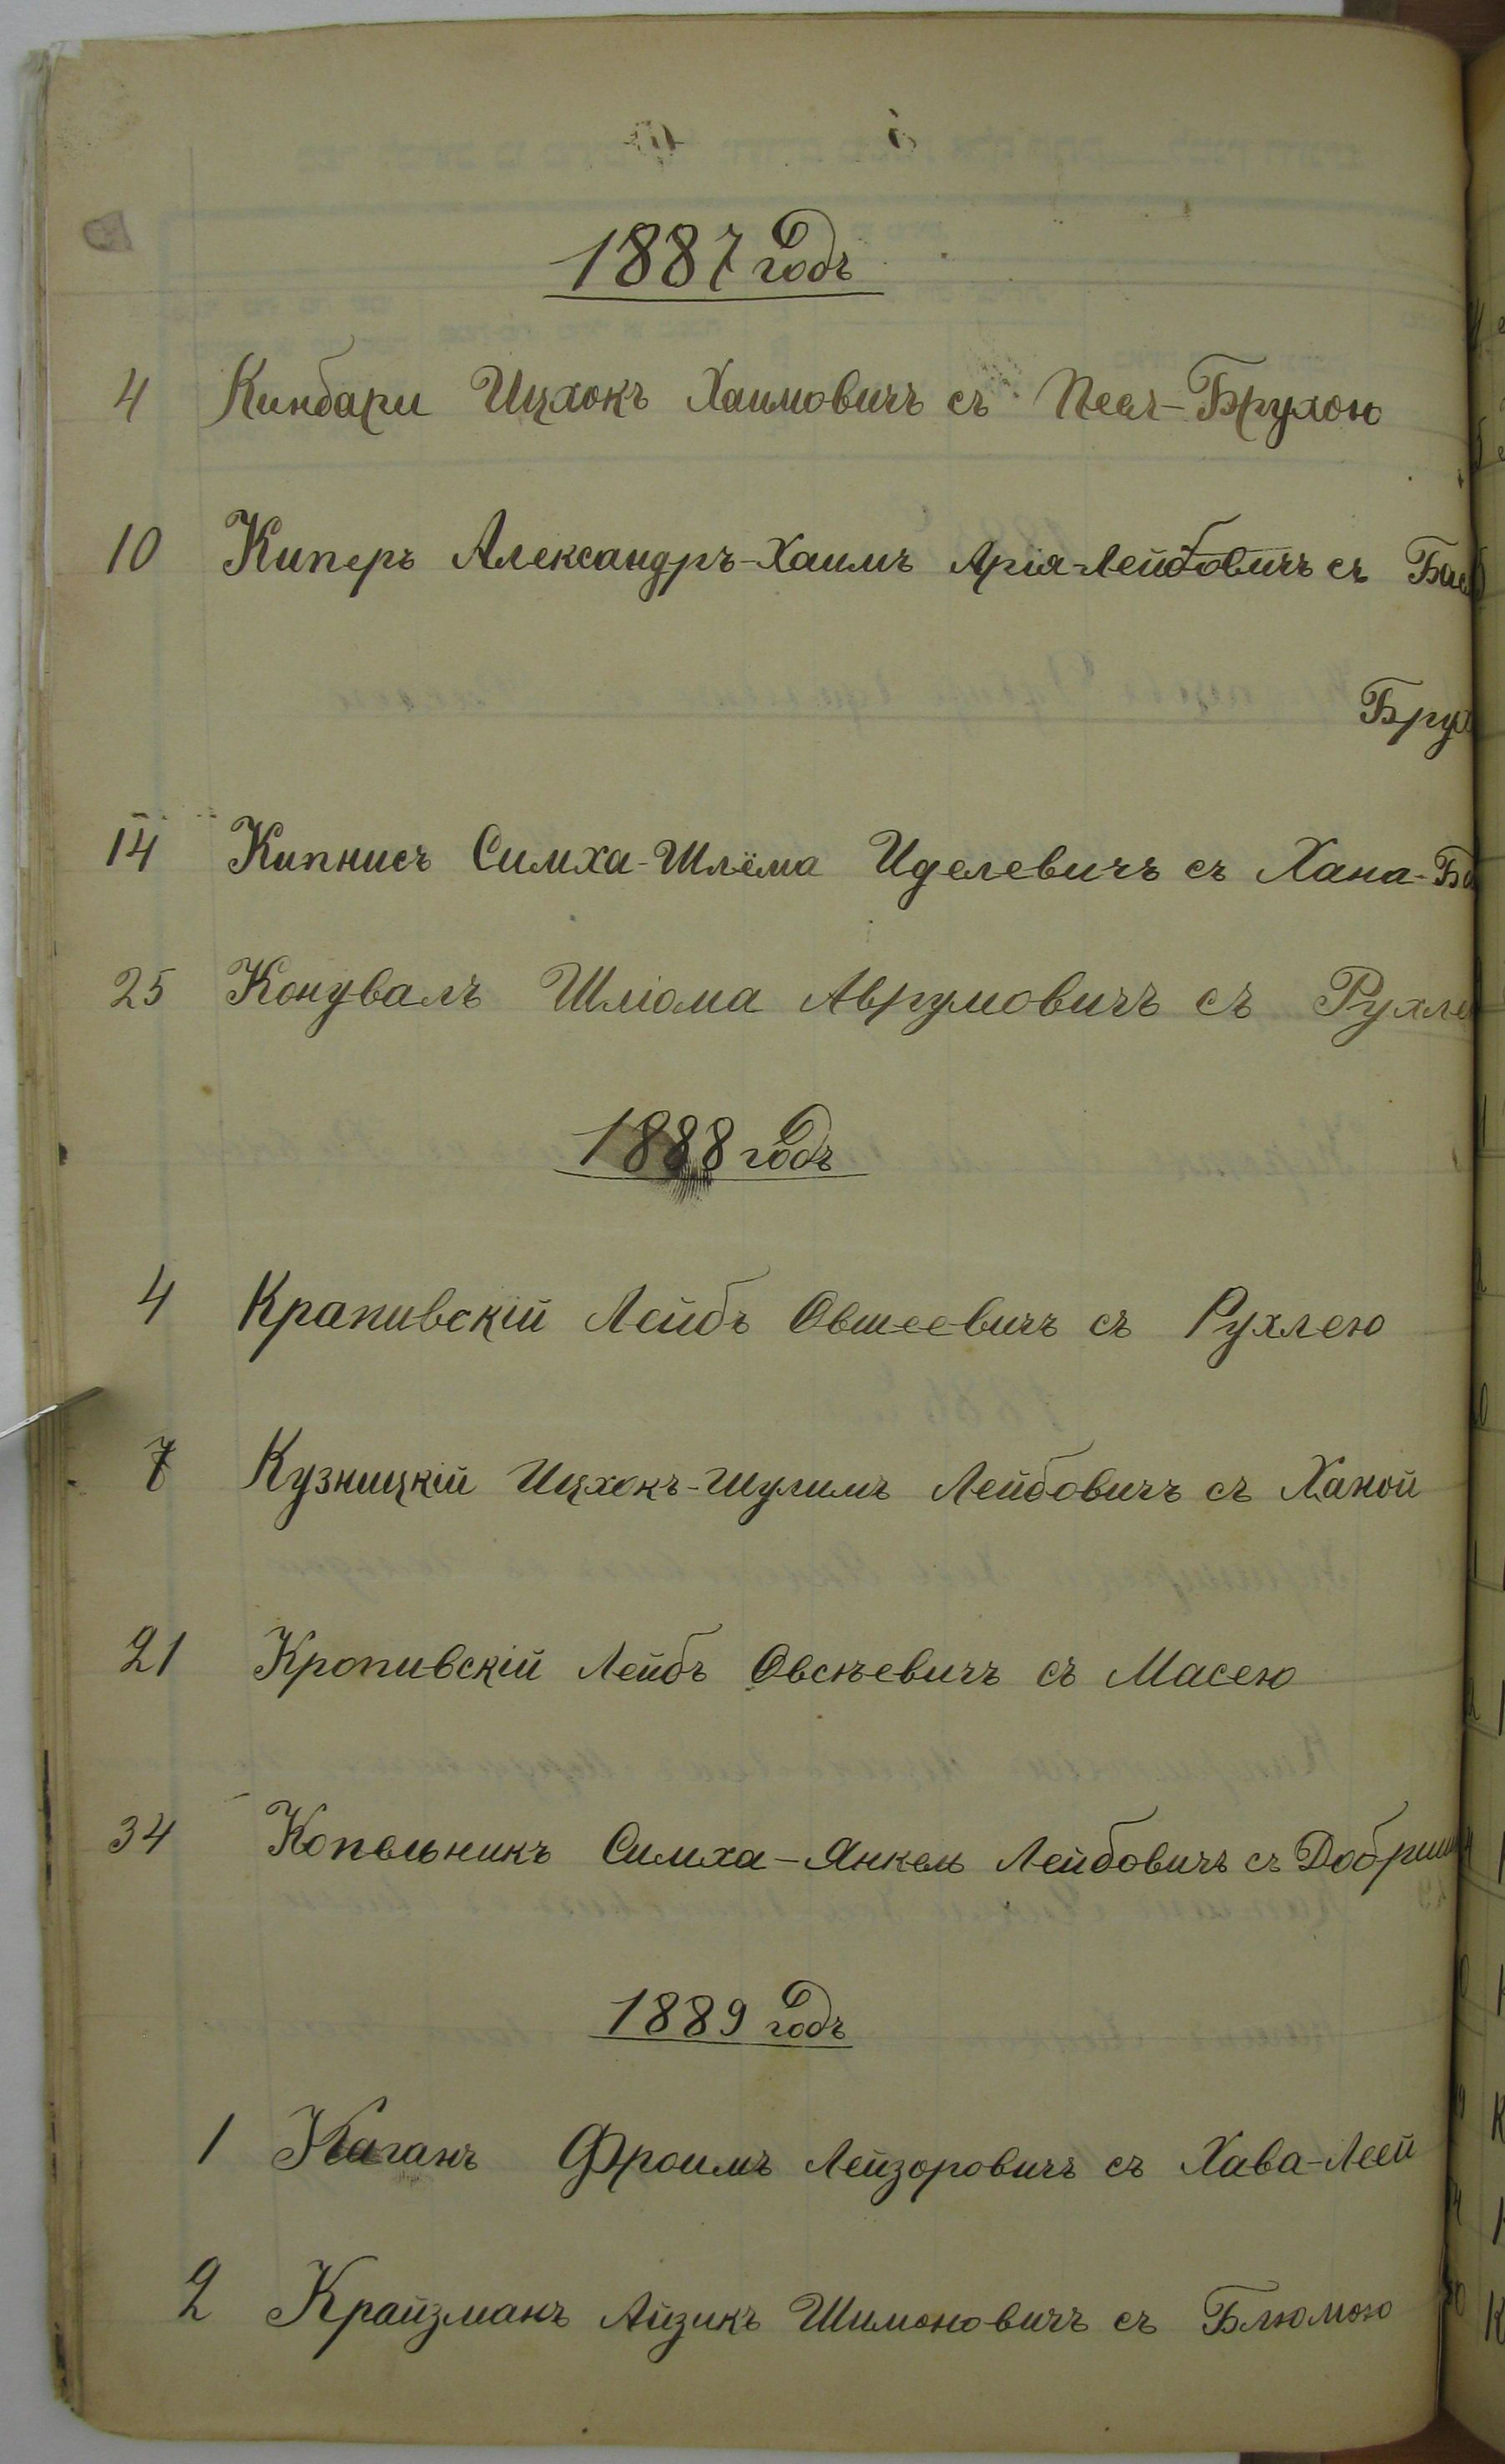 1887 годъ
4 Кинбари Ицхокъ Хаимовичъ съ Песя-Брухою
10 Киперъ Александръ-Хаимъ Арiя-Лейбовичъ съ Бас
Брух
14 Кипнисъ Симха-Шлёма Иделевичъ съ Хана-Ба
25 Конувалъ Шлiома Аврумовичъ съ Рухле
1888 годъ
4 Крапивскiй Лейбъ Овшеевичъ съ Рухлею
7 Кузницкiй Ицхокъ-Шулимъ Лейбовичъ съ Ханой
21 Кропивскiй Лейбъ Овсѣевичъ съ Масею
34 Копельникъ Симха-Янкель Лейбовичъ съ Добриш
1889 годъ
1 Каганъ Фроимъ Лейзоровичъ съ Хава-Леей
2 Крайзманъ Айзикъ Шимоновичъ съ Блюмою